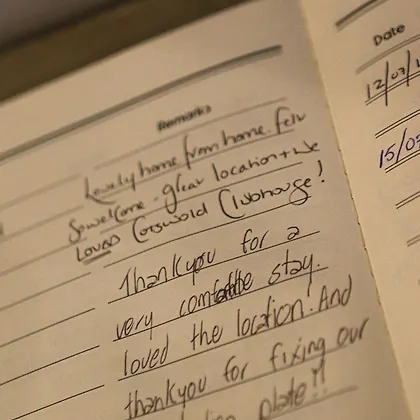 Remarks
Lovely home from home. Felt
so welcome - great location + we
Loved Cotswold Clubhouse!
Thankyou for a
very comfortable stay.
loved the location. And
thankyou for fixing our
plate!!
Date
12/07/
15/0